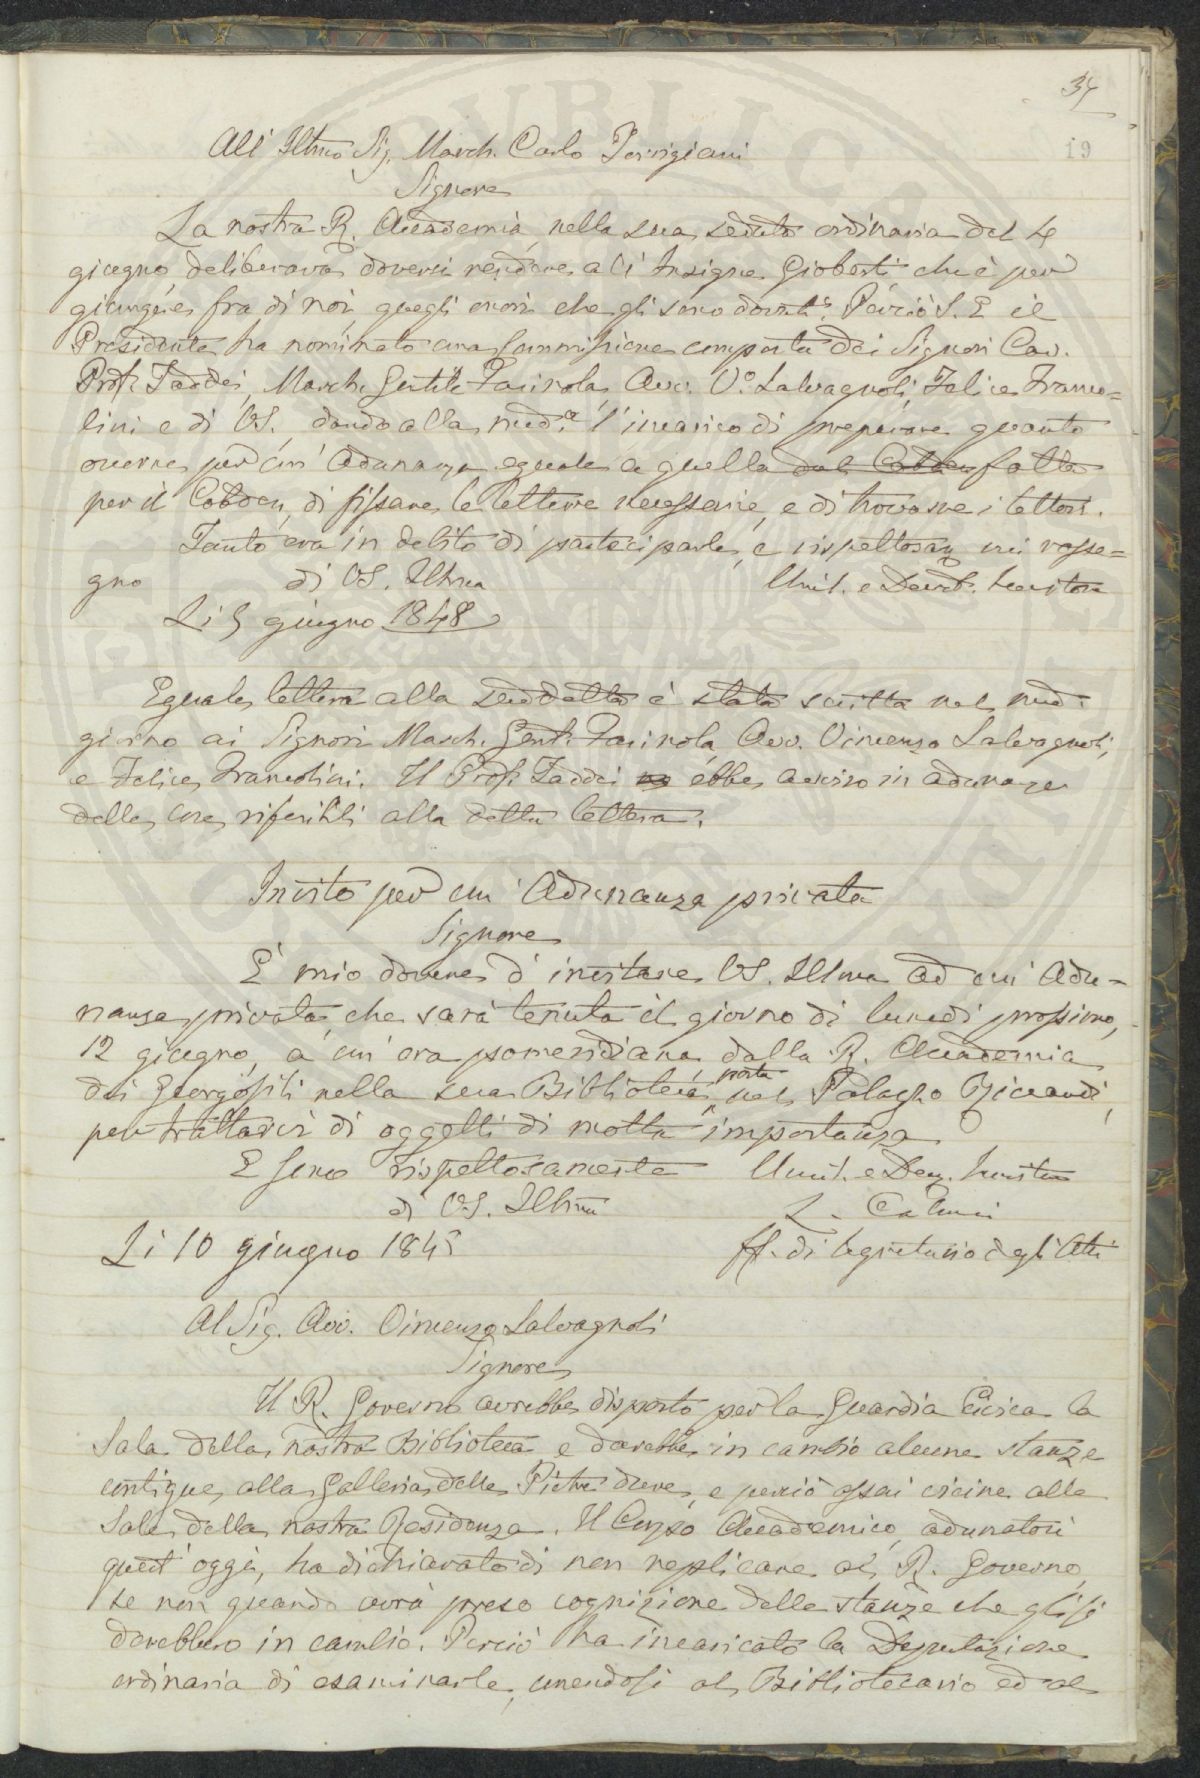 37
19
All' Illmo Sig. March. Carlo Torrigiani
Signore
La nostra R. Accademia, nella sua seduta ordinaria del 4
giugno, deliberava doversi rendere all' Insigne Gioberti che è per
giungere fra di noi, quegli onori che gli sono dovuti. Perciò S. E il
Presidente ha nominato una Commissione composta dei Signori Cav.
Prof. Taddei, March. Gentile Farinola, Avv. Vo. Salvagnoli, Felice Franco=
lini e di VS., dando alla med.a l'incarico di preparare quanto
occorre per un' Adunanza eguale a quella del Cobden fatta
per il Cobden, di fissare le letture necessarie, e di trovarne i lettori.
Tanto era in debito di parteciparle, e rispettosam mi rasse=
gno di VS. Illma Umil. e Devot. Servitore
Li 5 giugno 1848
Eguale lettera alla suddetta è stata scritta nel med.
giorno ai Signori March. Gent. Farinola, Avv. Vincenzo Salvagnoli,
e Felice Francolini. Il Prof. Taddei ebbe avviso in adunanza
delle cose riferibili alla detta lettera.
Invito per un' Adunanza privata
Signore
È mio dovere d' invitare VS. Illma ad un' Adu=
nanza privata che sarà tenuta il giorno di lunedì prossimo,
12 giugno, a un' ora pomeridiana, dalla R. Accademia
dei Georgofili nella sua Biblioteca, posta nel Palazzo Riccardi,
per trattarvi di oggetti di molta importanza
E sono rispettosamente Umil. e Dev. Servitore
di VS. Illma L. Calamai
Li 10 giugno 1848 ff. di Segretario degli Atti
Al Sig. Avv. Vincenzo Salvagnoli
Signore
Il R. Governo avrebbe disposto per la Guardia Civica la
Sala della nostra Biblioteca e darebbe in cambio alcune stanze
contigue alla Galleria delle Pietre dure, e perciò assai vicine alla
Sala della nostra Residenza. Il Corpo Accademico, adunatosi
quest' oggi, ha dichiarato di non replicare al R. Governo,
se non quando avrà preso cognizione delle stanze che gli si
darebbero in cambio. Perciò ha incaricato la Deputazione
ordinaria di esaminarle, unendosi al Bibliotecario ed al